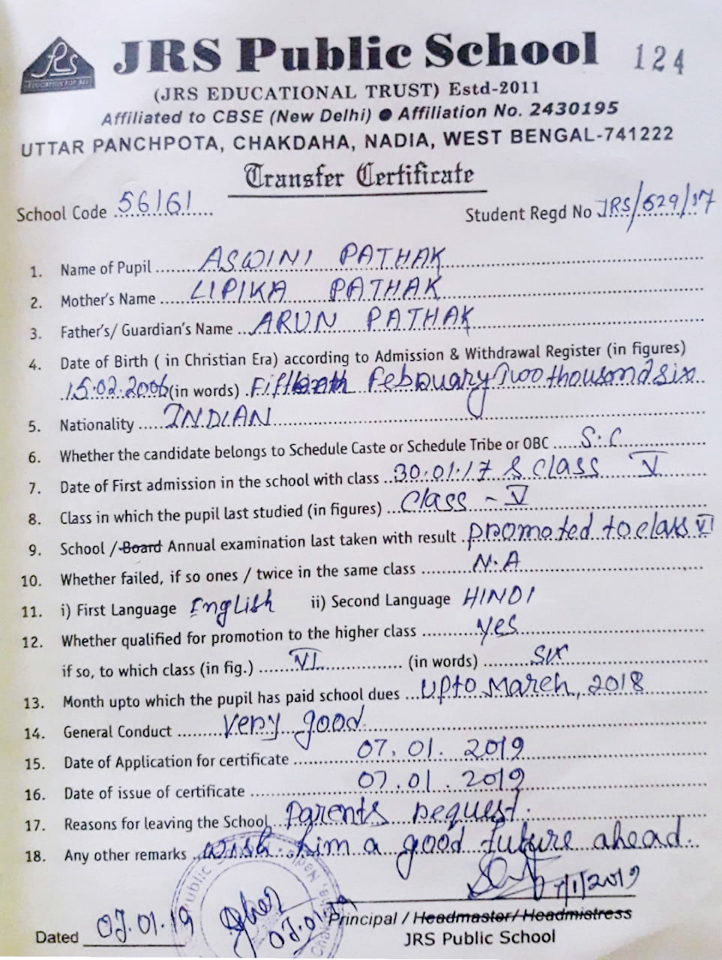 JRS
EDUCATION FOR ALL
JRS Public School
124
(JRS EDUCATIONAL TRUST) Estd-2011
Affiliated to CBSE (New Delhi) ● Affiliation No. 2430195
UTTAR PANCHPOTA, CHAKDAHA, NADIA, WEST BENGAL-741222
Transfer Certificate
School Code 56161 Student Regd No JRS/629/17
1. Name of Pupil ASWINI PATHAK
2. Mother's Name LIPIKA PATHAK
3. Father's/ Guardian's Name ARUN PATHAK
4. Date of Birth ( in Christian Era) according to Admission & Withdrawal Register (in figures)
15.02.2006 (in words) Fifteenth February Two thousand six
5. Nationality INDIAN
6. Whether the candidate belongs to Schedule Caste or Schedule Tribe or OBC S.C
7. Date of First admission in the school with class 30.01.17 & Class V
8. Class in which the pupil last studied (in figures) Class - V
9. School / Board Annual examination last taken with result promoted to class VI
10. Whether failed, if so ones / twice in the same class N.A
11. i) First Language English ii) Second Language HINDI
12. Whether qualified for promotion to the higher class yes
if so, to which class (in fig.) VI (in words) SIX
13. Month upto which the pupil has paid school dues Upto March, 2018
14. General Conduct very good
15. Date of Application for certificate 07.01.2019
16. Date of issue of certificate 07.01.2019
17. Reasons for leaving the School Parents request.
18. Any other remarks wish him a good future ahead.
7/1/2019
Dated 07.01.19 07.01.19 Principal / Headmaster/ Headmistress
JRS Public School